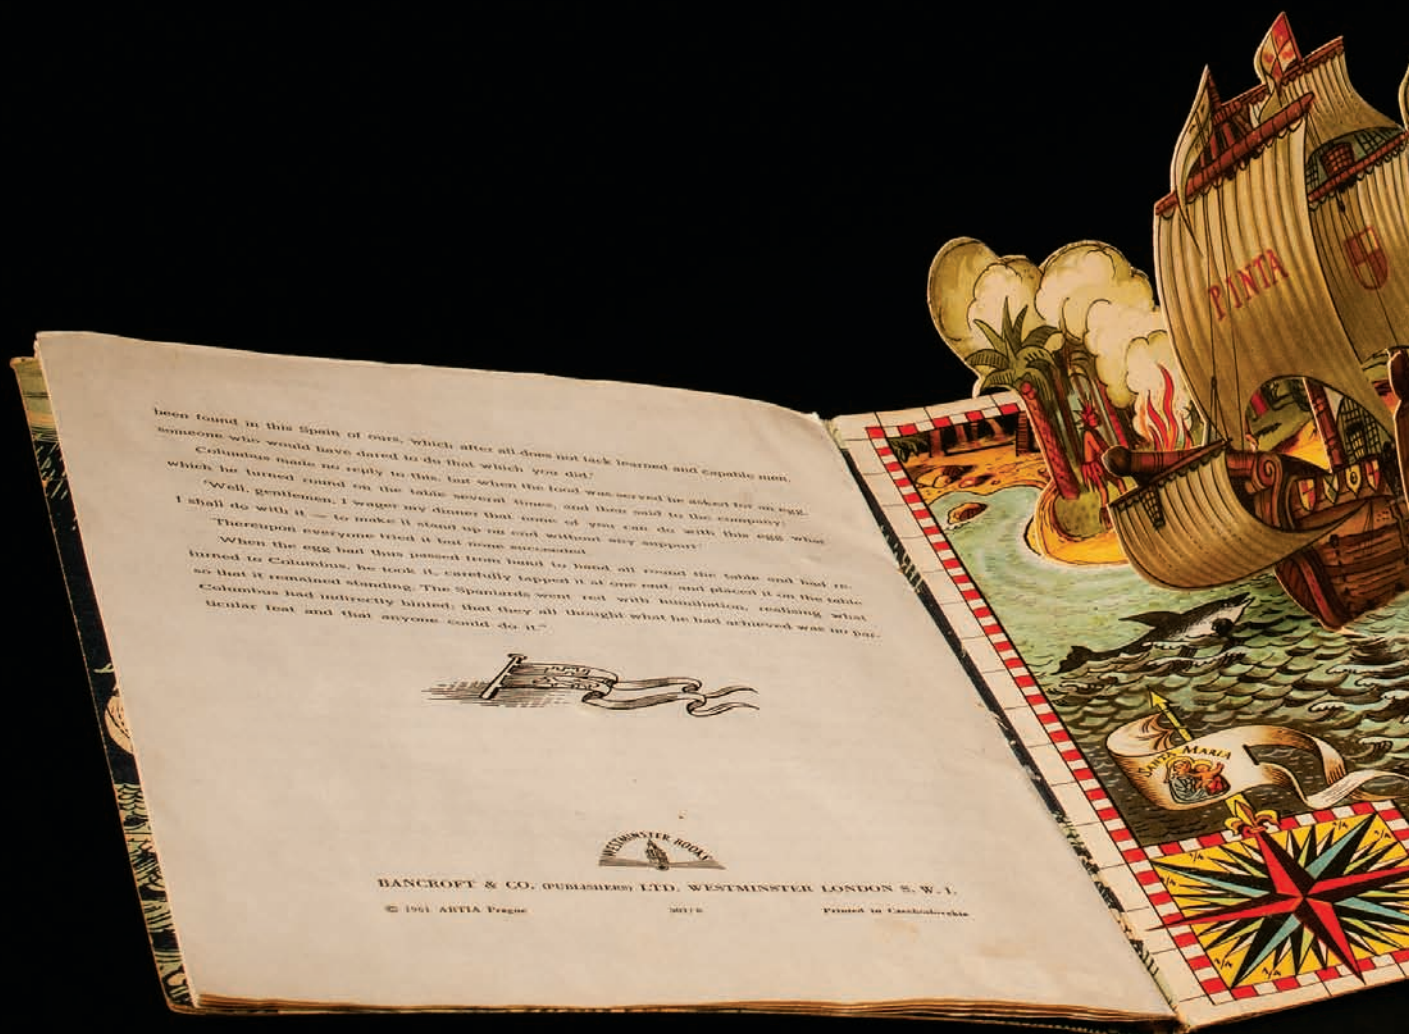 been found in this Spain of ours, which after all does not lack learned and capable men,
someone who would have dared to do that which you did.'
Columbus made no reply to this, but when the food was served he asked for an egg,
which he turned round on the table several times, and then said to the company:
'Well, gentlemen, I wager my dinner that none of you can do with this egg what
I shall do with it — to make it stand up on end without any support.'
Thereupon everyone tried it but none succeeded.
When the egg had thus passed from hand to hand all round the table and had re-
turned to Columbus, he took it, carefully tapped it at one end, and placed it on the table
so that it remained standing. The Spaniards went red with humiliation, realising what
Columbus had indirectly hinted; that they all thought what he had achieved was no par-
ticular feat and that anyone could do it."
WESTMINSTER BOOKS
BANCROFT & CO. (PUBLISHERS) LTD. WESTMINSTER LONDON S. W. 1.
© 1961 ARTIA Prague Printed in Czechoslovakia
PINTA
SANTA MARIA